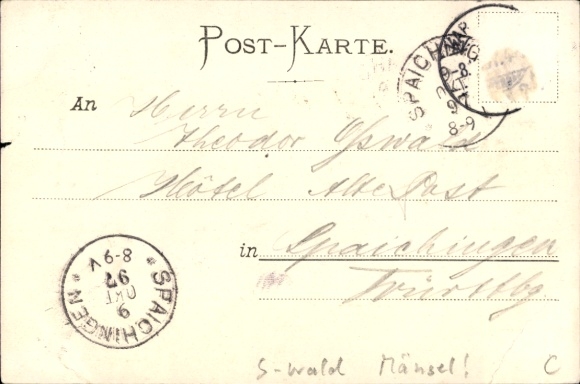 POST-KARTE.
An Herrn
Theodor Osswald
Hôtel Alte Post
in Spaichingen
Württbg
SPAICHINGEN
9
OKT
97
V 8-9
SPAICHIN
8-9
S-Wald Mänsel!
C